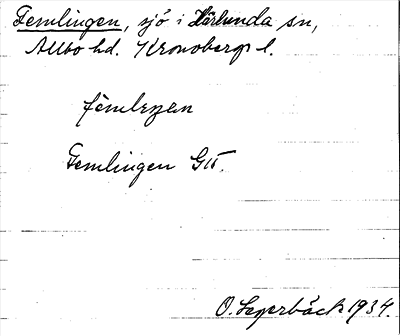 Femlingen, sjö i Härlunda sn,
Allbo hd. Kronobergs l.
fèmlẹŋen
Femlingen GK.
O. Lagerbäck 1934.